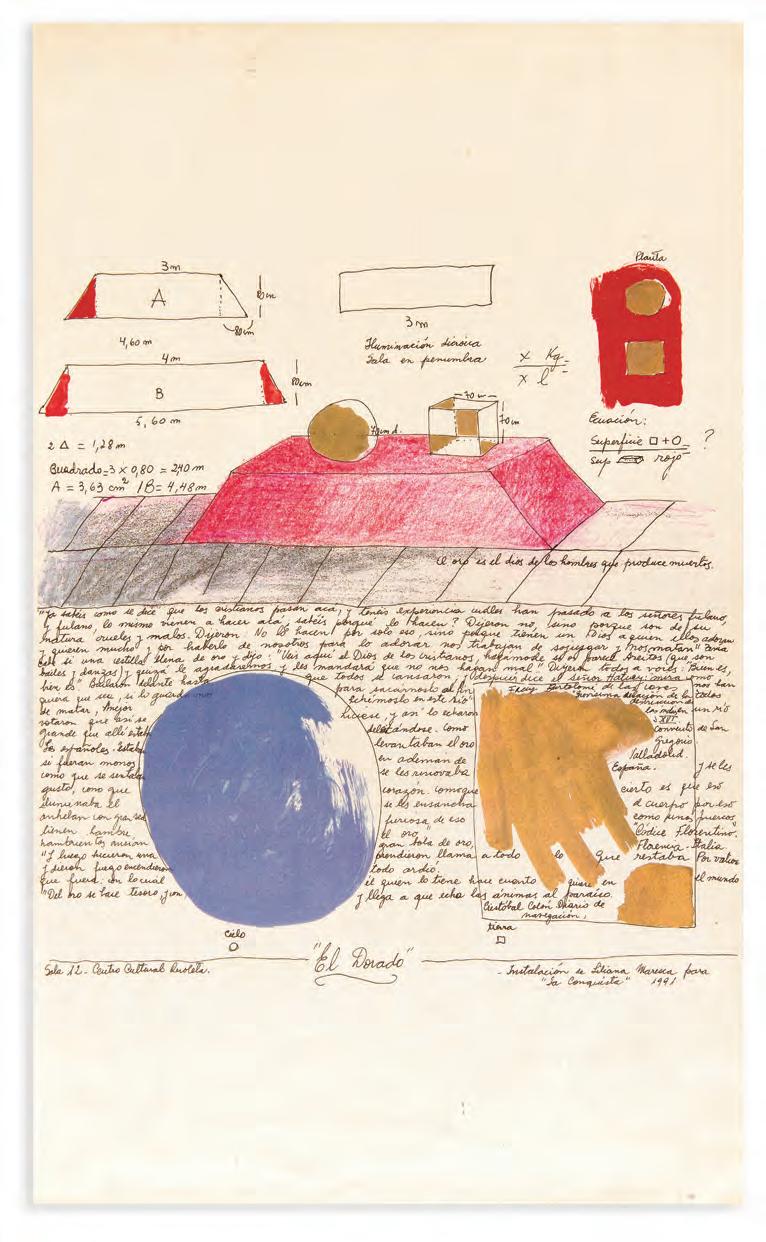 3m
Planta
A
80cm
80cm
3m
4,60 m
Iluminación dicroica
Sala en penumbra
x Kg =
x l
4m
B
80cm
5,60 m
70cm
70cm
70cm d.
Ecuación:
Superficie □ + O = ?
Sup rojo
2 Δ = 1,28 m
Cuadrado = 3 x 0,80 = 2,40 m
A = 3,63 cm² / B = 4,48 m
El oro es el dios de los hombres que produce muertos.
"Ya sabéis como se dice que los cristianos pasan acá, y tenéis experiencia cuáles han pasado a los señores fulano,
y fulano, lo mismo vienen a hacer acá, sabéis porqué lo hacen? Dijeron no, sino porque son de su
natura crueles y malos. Dijeron: No lo hacen por solo eso, sino porque tienen un Dios a quien ellos adoran
y quieren mucho y por haberlo de nosotros para lo adorar nos trabajan de sojuzgar y nos matan" Tenía
cabe sí una cestilla llena de oro y dijo: "Veis aquí el Dios de los cristianos, hagámosle si os parece Areitos (que son
bailes y danzas) y quizá le agradaremos y les mandará que no nos hagan mal" Dijeron todos a voces: Bien es,
bien es" Bailaron delante hasta que todos se cansaron, y después dice el señor Hatuey: mira como
quiera que sea, si lo guardamos para sacárnoslo al fin nos han
de matar, Mejor echémoslo en este río Fray Bartolomé de las Casas todos
votaron que así se hiciese, y así lo echaron Brevísima relación de la destrucción de las indias en un río
grande que allí estaba deleitándose. Como XVI convento de San
los españoles. Estaban levantaban el oro Gregorio
si fueran monos en ademán de Valladolid. y se les
como que se sentaban se les renovaba España.
gusto, como que corazón. como que cierto es que eso
iluminaba el se les ensancha el cuerpo por eso
anhelan con gran sed furiosa de eso como unos puercos
tienen hambre el oro." "Códice Florentino".
hambrientos ansían gran bola de oro, Florencia - Italia
"Y luego hicieron una prendieron llama a todo lo que restaba Por valioso
y dieron fuego encendieron todo ardió:
que fuera: con lo cual él quien lo tiene hace cuanto quiere en el mundo
"Del oro se hace tesoro, y con y llega a que echa las ánimas al paraíso.
Cristóbal Colón Diario de
navegación.
Cielo
O
tierra
□
"El Dorado"
Sala 12 - Centro Cultural Recoleta.
- Instalación de Liliana Maresca para
"La Conquista" 1991